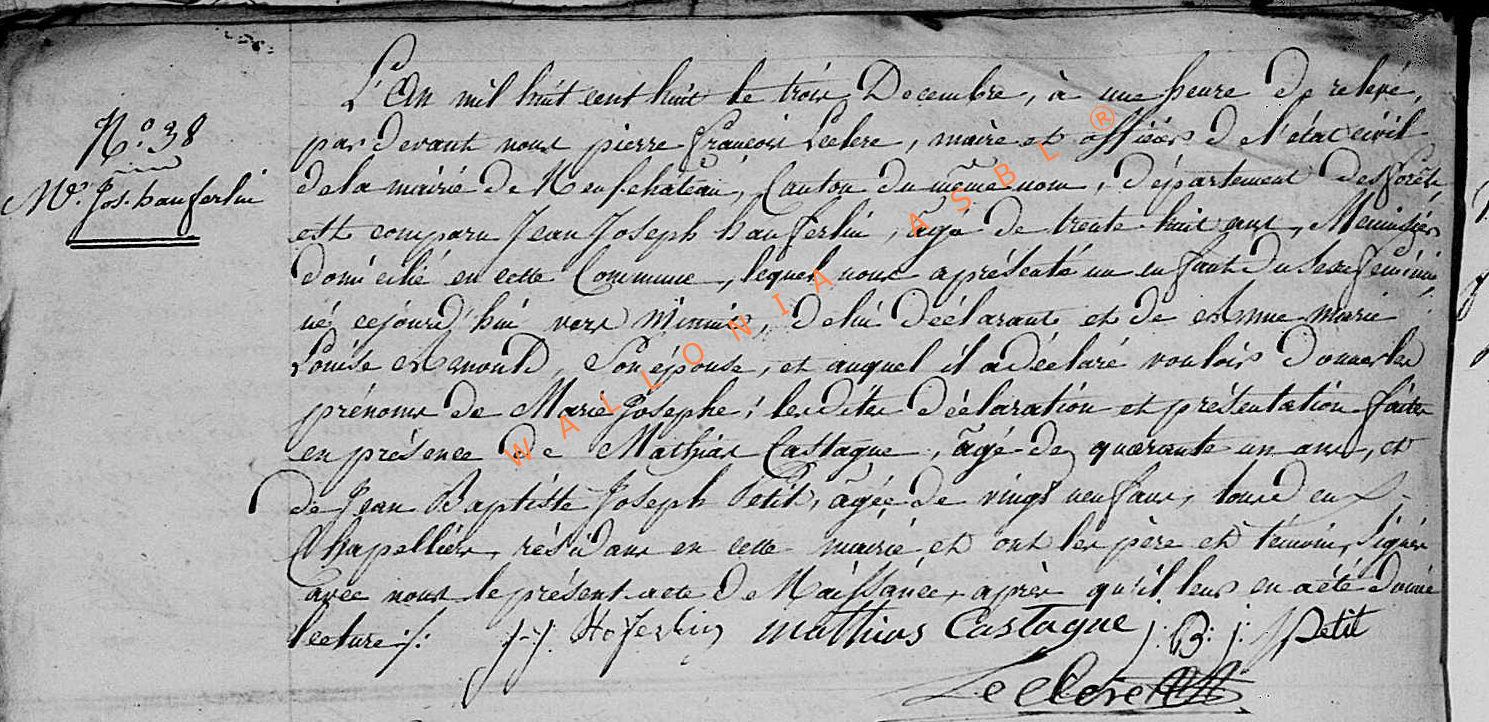 N.° 38
M.e Jos. hauferlin
L'An mil huit cent huit le trois Decembre, à une heure de relevé,
pardevant nous pierre françois Leclere, maire et officier de l'état civil
de la mairie de Neufchateau, Canton du même nom, département des forêts
est comparu Jean Joseph hauferlin, âgé de trente huit ans, Ménuisier
domicilié en cette Commune, lequel nous aprésenté un enfant du sexe féminin
né cejourd'hui vers Minuit, de lui déclarant et de Anne Marie
Louise Arnould, Son épouse, et auquel il a déclaré vouloir donner les
prénoms de Marie Josephe; lesdites déclaration et présentation faites
en présence de Mathias Castagne, âgé de quarante un ans, et
de Jean Baptiste Joseph Petit, âgée de vingt neuf ans, tous deux
Chapelliers, résidans en cette mairie et ont les père et témoins Signés
avec nous le présent acte de Naissance, après qu'il leur en a été donné
lecture ./.
J. J. Hoferlin Mathias Castagne J: B: j: Petit
Leclere
WALLONIA ASBL ®